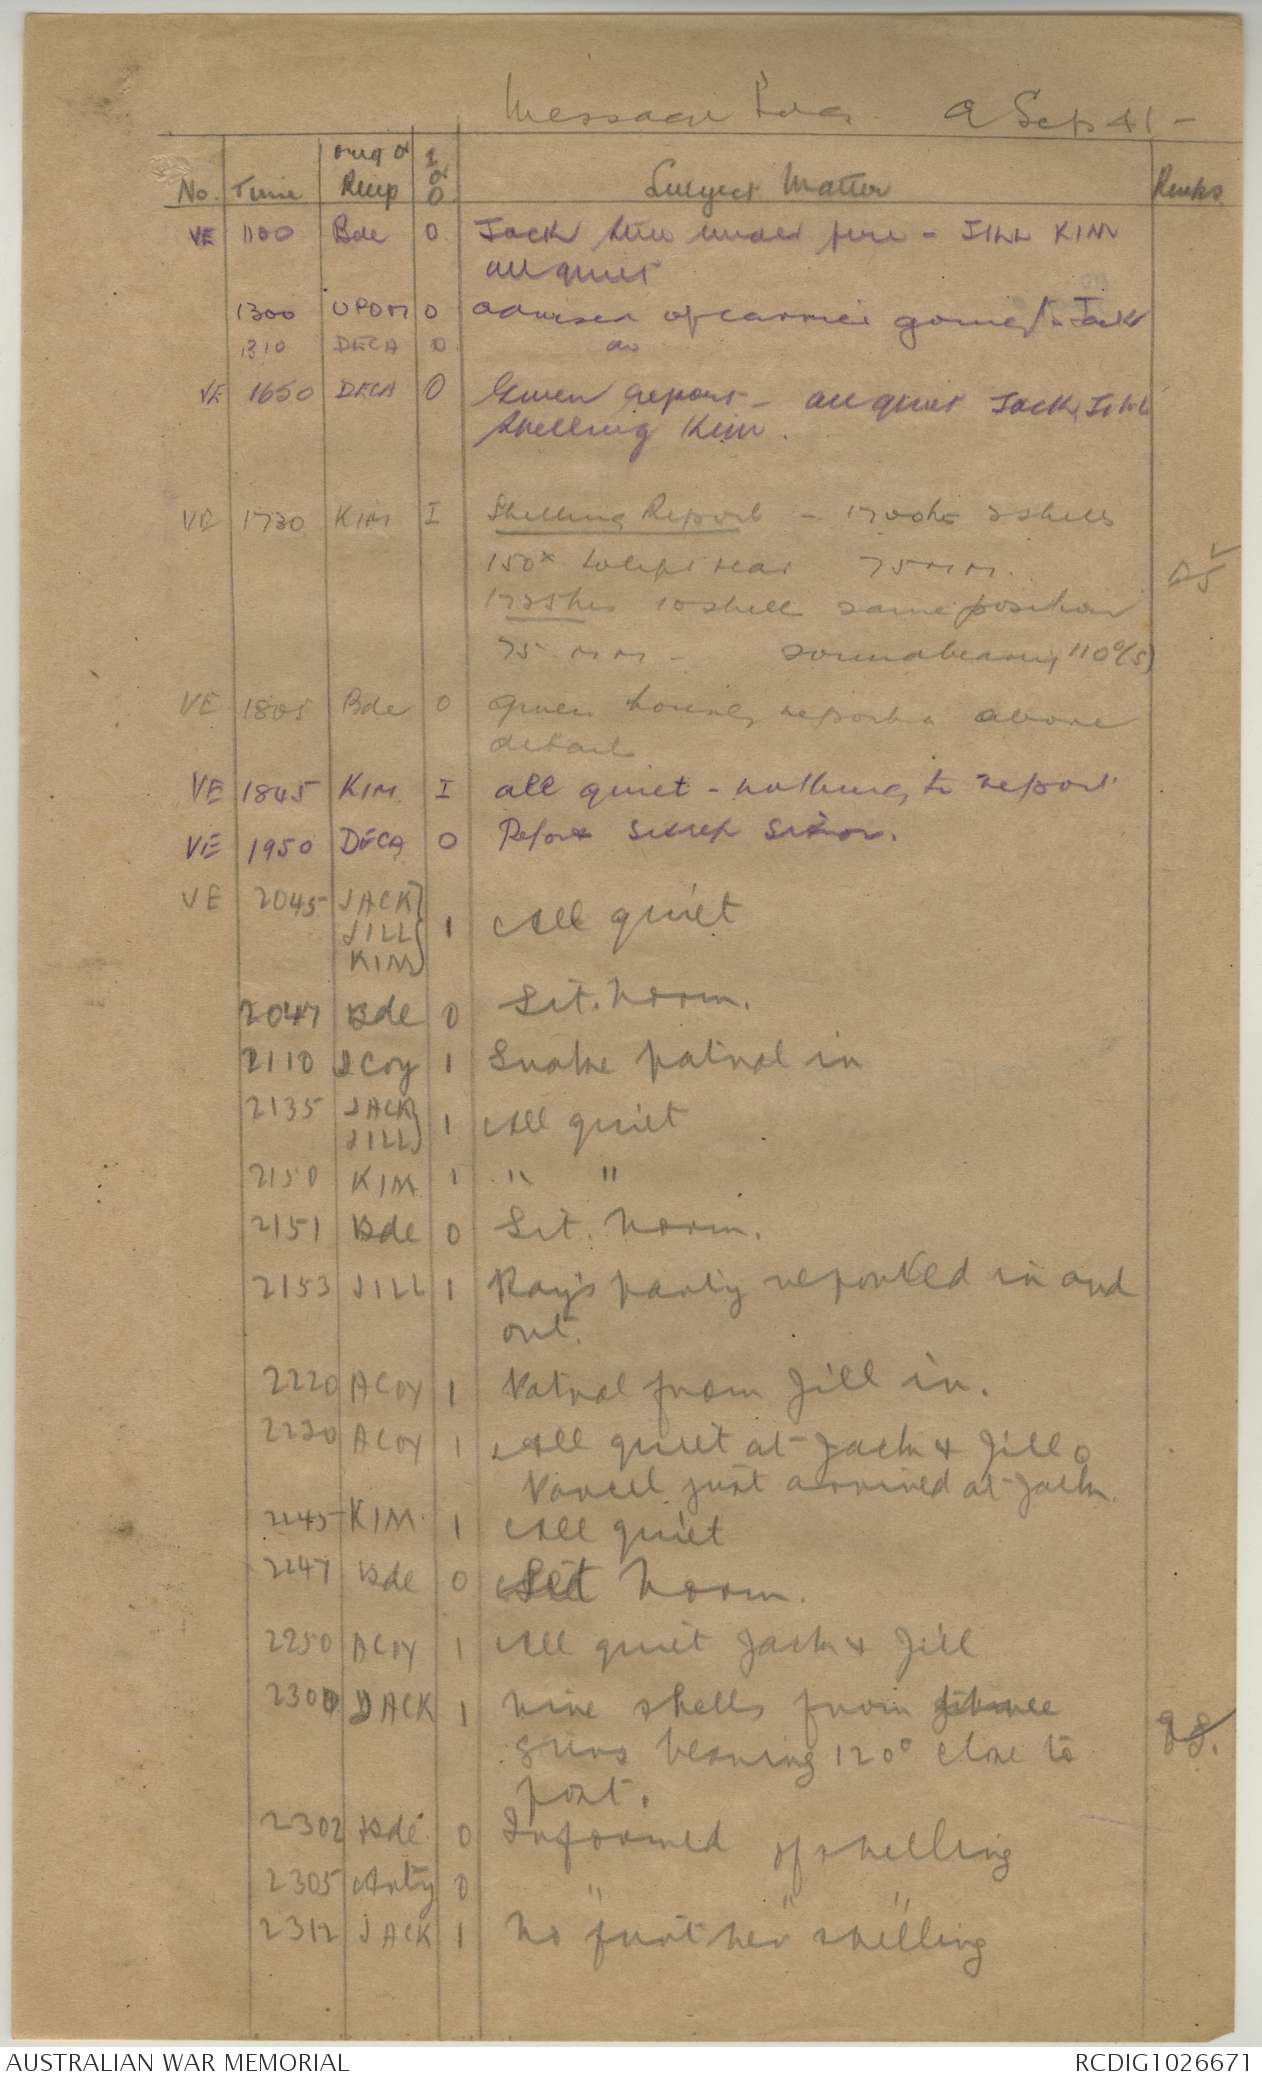 Message Log. 9 Sep 41 -
No. Time Orig or Recip I or O Subject Matter Remks
VE 1100 Bde O Jack still under fire - JILL KIM
all quiet
1300 O advised of carrier going Jack
1310 DECA O do
VE 1650 DECA O Given report - all quiet Jack, Jill
Shelling Kim.
VE 1730 KIM I Shelling Report - 1700 hrs 2 shells
150x rear 75 MM.
1725 hrs 10 shell same position
75 MM - sound bearing 110°(s)
VE 1805 Bde O given hourly report & above
detail
VE 1845 KIM I all quiet - nothing to report
VE 1950 DECA O Report Sitrep
VE 2045 JACK
JILL 1 All quiet
KIM
2047 Bde O Sit. Norm.
2110 Coy 1 Snake patrol in
2135 JACK
JILL 1 All quiet
2150 KIM 1 " "
2151 Bde O Sit. Norm.
2153 JILL 1 Ray's party reported in and
out.
2220 A Coy 1 Patrol from Jill in.
2230 A Coy 1 All quiet at Jack & Jill.
Parcel just arrived at Jack.
2245 KIM 1 All quiet
2247 Bde O Sit Norm.
2250 A Coy 1 All quiet Jack & Jill
2300 JACK 1 Nine shells from
guns bearing 120° close to
post.
2302 Bde O Informed of shelling
2305 Arty O " " "
2312 JACK 1 No further shelling
AUSTRALIAN WAR MEMORIAL RCDIG1026671